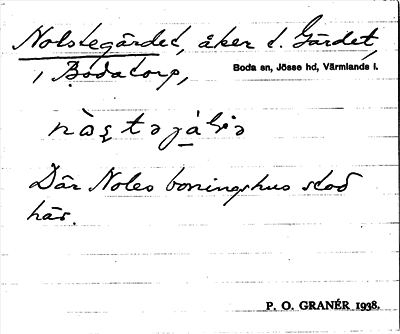 Nolstegärdet, åker t. Gärdet,
i Bodatorp, Boda sn, Jösse hd, Värmlands l.
Där Noles boningshus stod
här.
P. O. GRANÉR 1938.